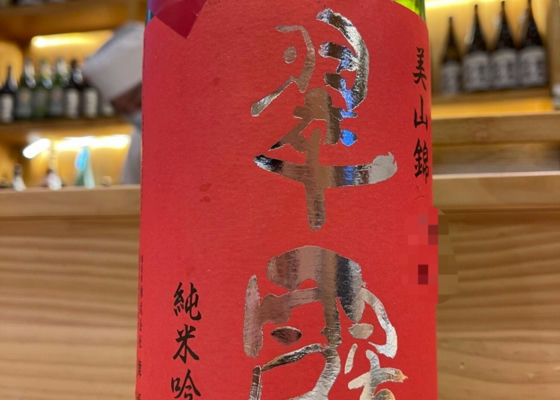 美山錦
翠露
純米吟